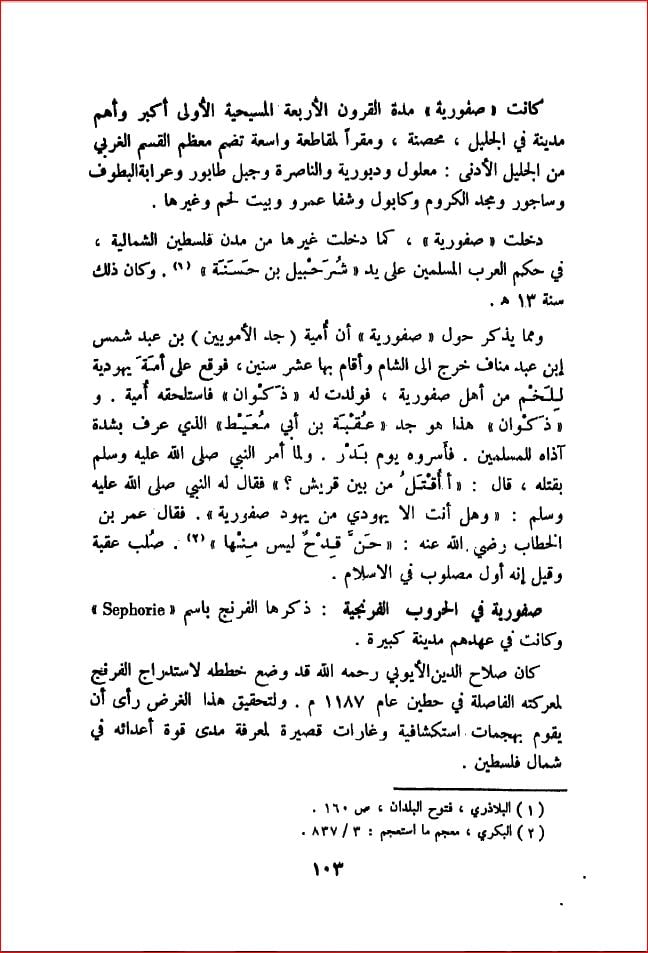 كانت « صفورية » مدة القرون الأربعة المسيحية الأولى أكبر وأهم
مدينة في الجليل ، محصنة ، ومقراً لمقاطعة واسعة تضم معظم القسم الغربي
من الجليل الأدنى : معلول ودبورية والناصرة وجبل طابور وعرابةالبطوف
وساجور ومجد الكروم وكابول وشفا عمرو وبيت لحم وغيرها .
دخلت « صفورية » ، كما دخلت غيرها من مدن فلسطين الشمالية ،
في حكم العرب المسلمين على يد « شُرَحْبيل بن حَسَنَة » (١) . وكان ذلك
سنة ١٣ هـ .
ومما يذكر حول « صفورية » أن أُمية ( جد الأمويين ) بن عبد شمس
إبن عبد مناف خرج الى الشام وأقام بها عشر سنين، فوقع على أمَةَ يهودية
لِلَخْم من أهل صفورية ، فولدت له « ذَكْوان » فاستلحقه أُمية . و
« ذَكْوان » هذا هو جد « عُقْبَة بن أبي مُعَيْط » الذي عرف بشدة
آذاه للمسلمين . فأسروه يوم بَدْر . ولما أمر النبي صلى الله عليه وسلم
بقتله ، قال : « أأُقْتَلُ من بين قريش ؟ » فقال له النبي صلى الله عليه
وسلم : « وهل أنت الا يهودي من يهود صفورية » . فقال عمر بن
الخطاب رضي الله عنه : « حَنَّ قِدْحٌ ليس مِنْها » (٢) . صُلب عقبة
وقيل إنه أول مصلوب في الاسلام .
صفورية في الحروب الفرنجية : ذكرها الفرنج باسم « Sephorie »
وكانت في عهدهم مدينة كبيرة .
كان صلاح الدين الأيوبي رحمه الله قد وضع خططه لاستدراج الفرنج
لمعركته الفاصلة في حطين عام ١١٨٧ م . ولتحقيق هذا الغرض رأى أن
يقوم بهجمات استكشافية وغارات قصيرة لمعرفة مدى قوة أعدائه في
شمال فلسطين .
( ١ ) البلاذري ، فتوح البلدان ، ص ١٦٠ .
( ٢ ) البكري ، معجم ما استعجم : ٣ / ٨٣٧ .
١٠٣